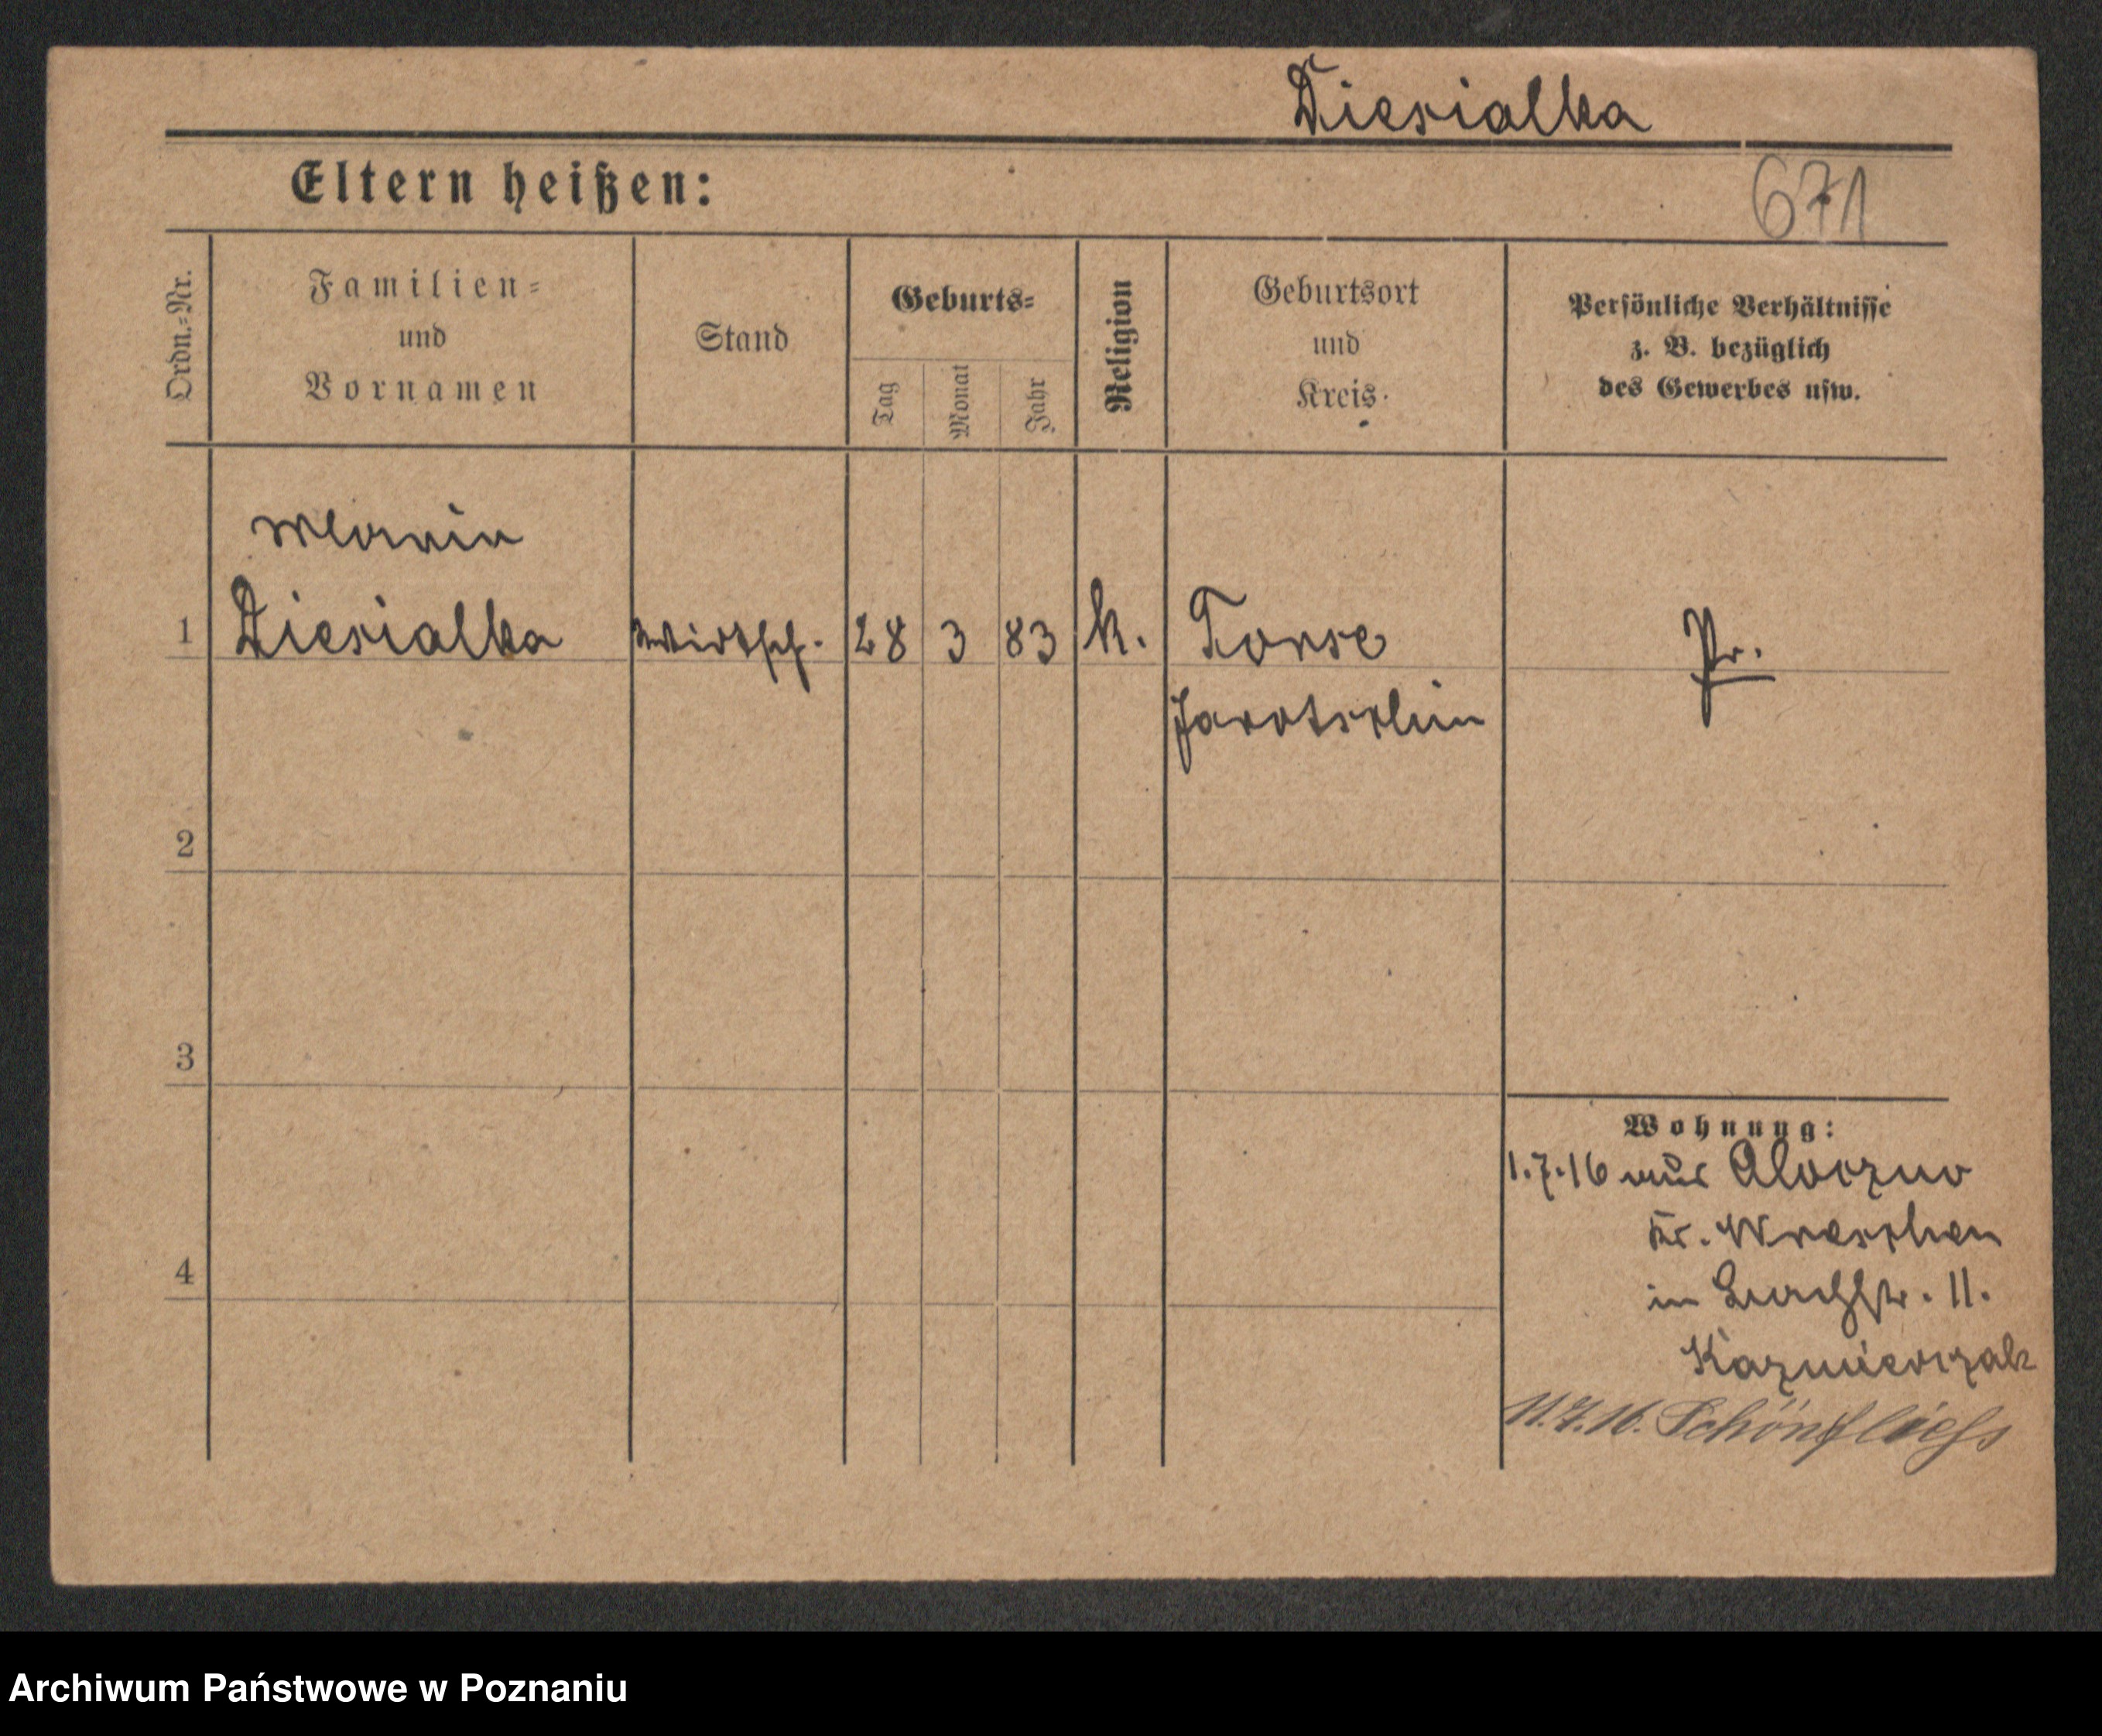 Diesialka
Eltern heißen:
671
Ordn.=Nr.
Familien=
und
Vornamen
Stand
Geburts=
Tag
Monat
Jahr
Religion
Geburtsort
und
Kreis
Persönliche Verhältnisse
z. B. bezüglich
des Gewerbes usw.
1
Diesialka
Wirtsch.
28
3
83
k.
Torse
Jarotschin
Pr.
2
3
4
Wohnung:
1.7.16 aus
Kr. Wreschen
in
11.
Kazmierczak
11.7.16. Schönfliess
Archiwum Państwowe w Poznaniu